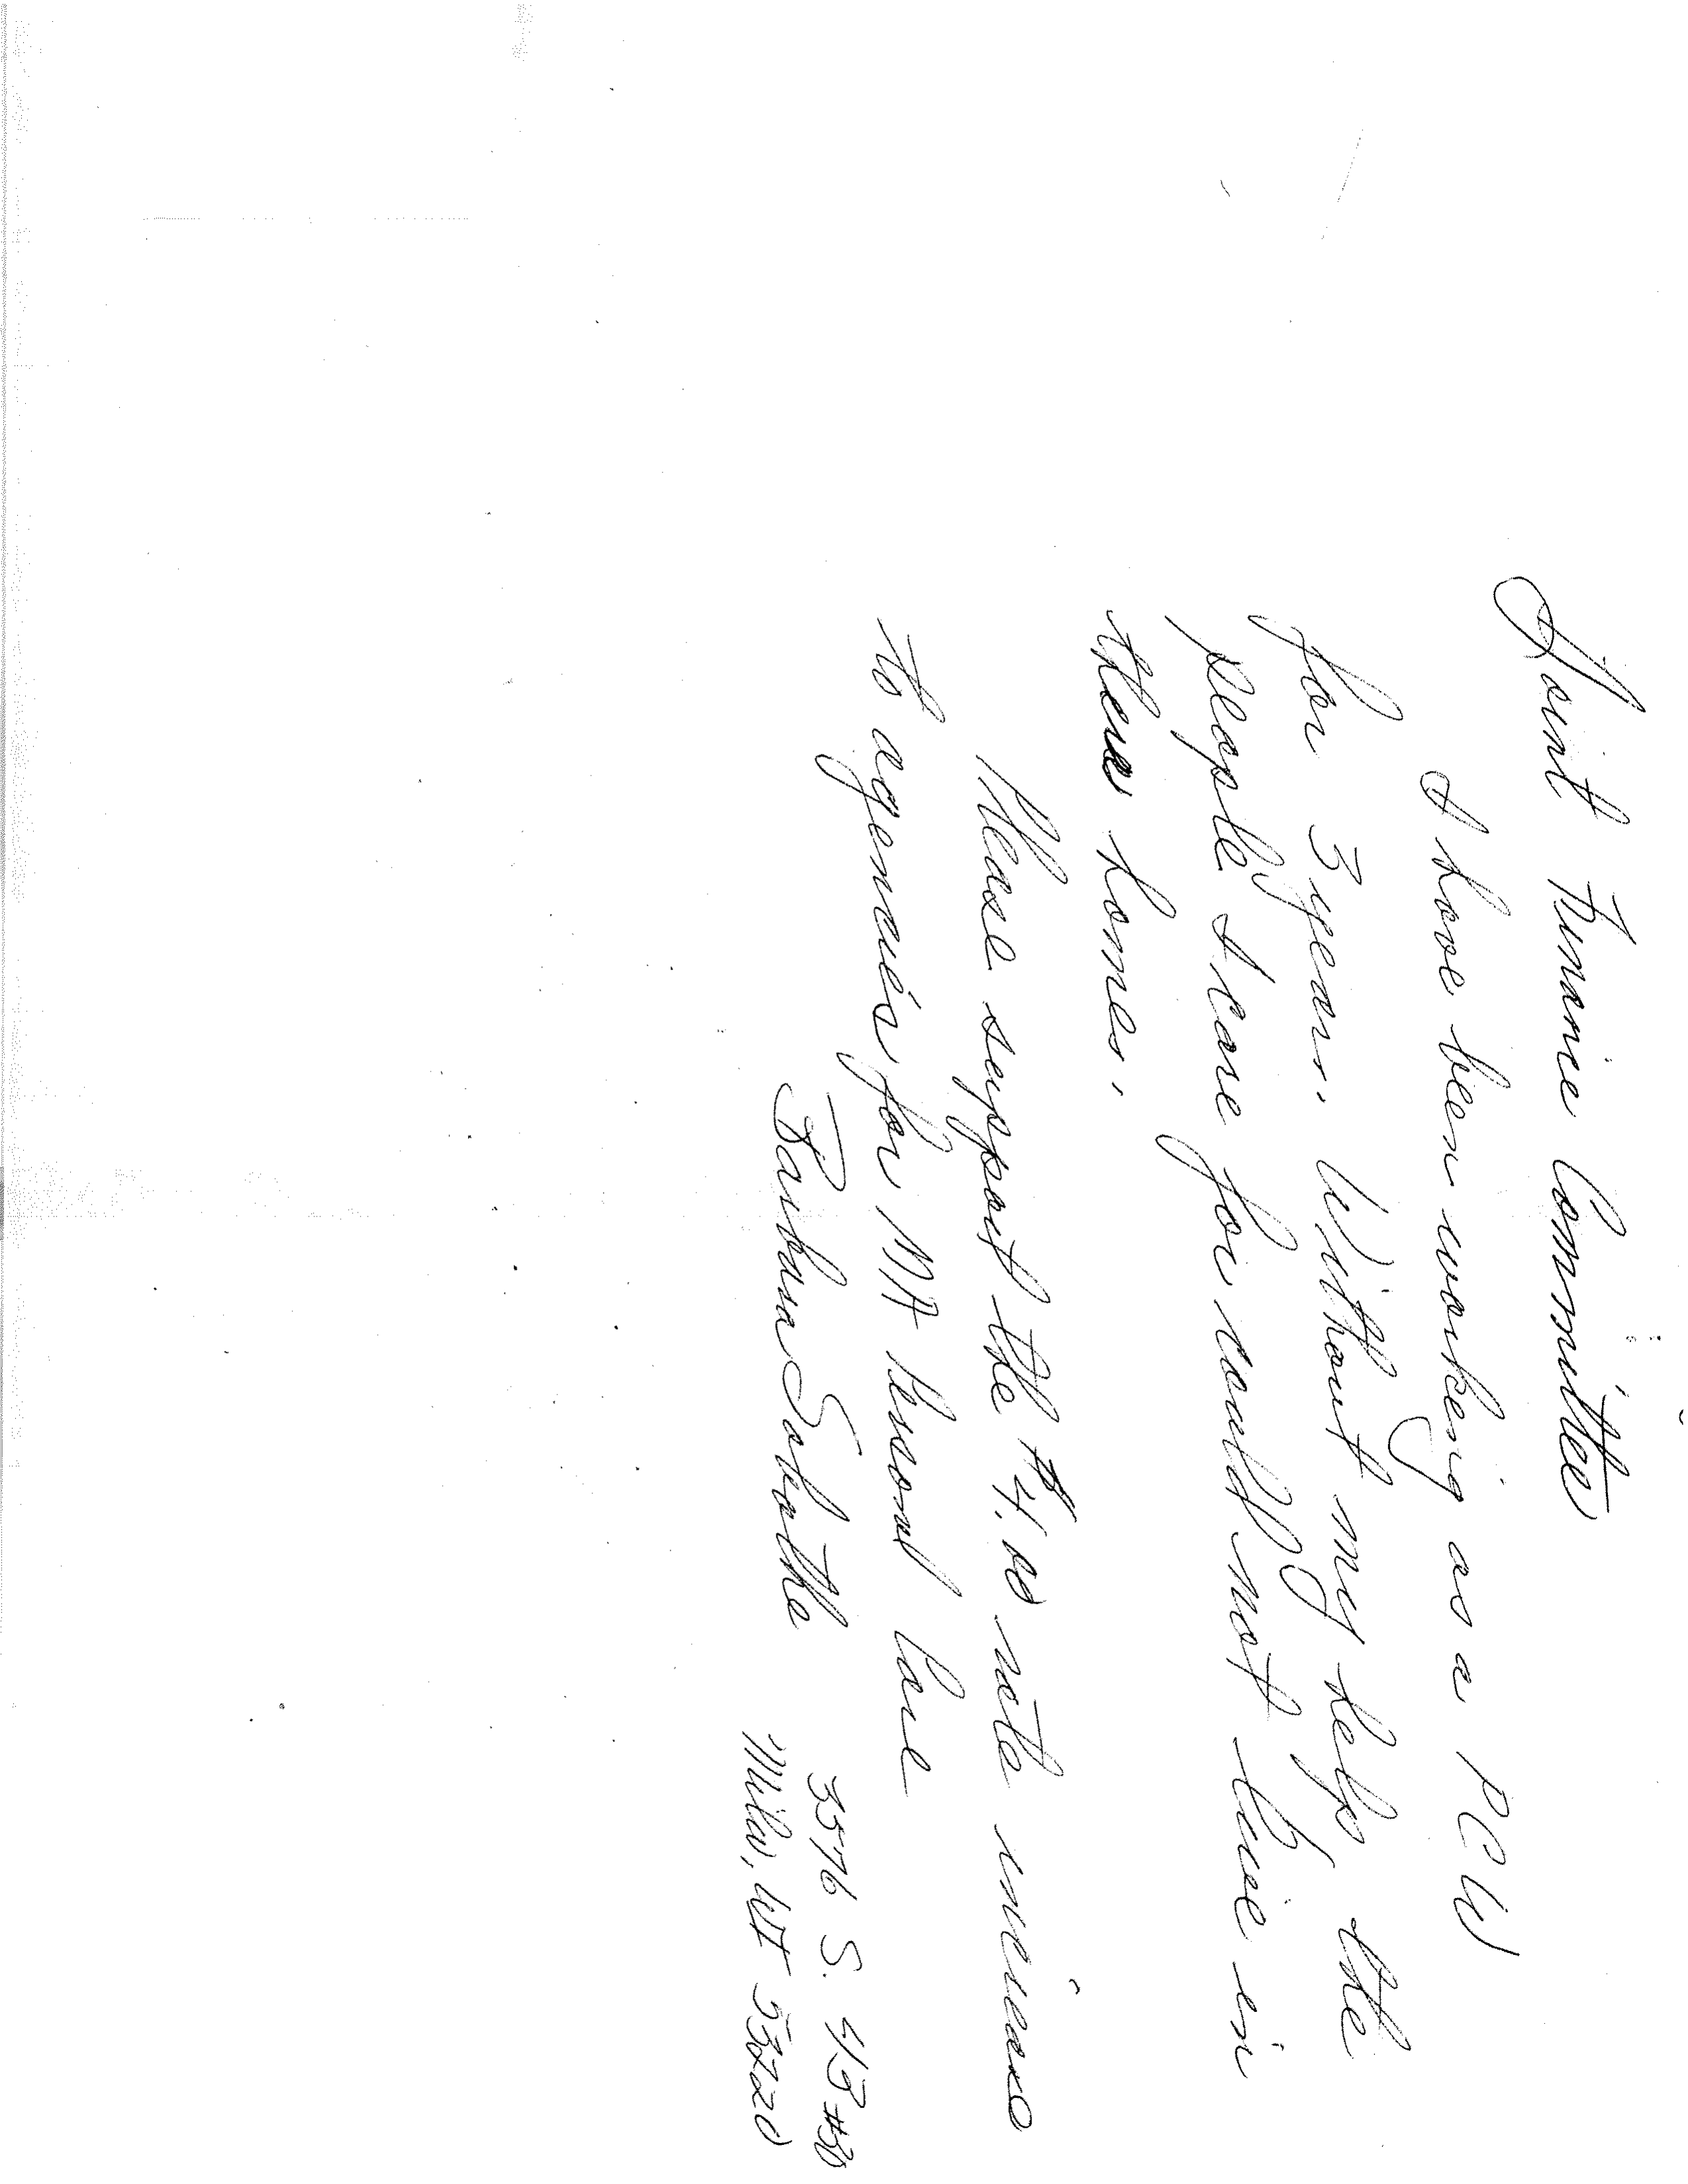 Joint Finance Committee
I have been working as a PCW
for 3 years. Without my help the
people I care for could not live in
there homes.
Please support the $4.00 rate increase
to agencies for MA Personal Care
Barbara
3576 S. 43 #30
Milw, WI 53220